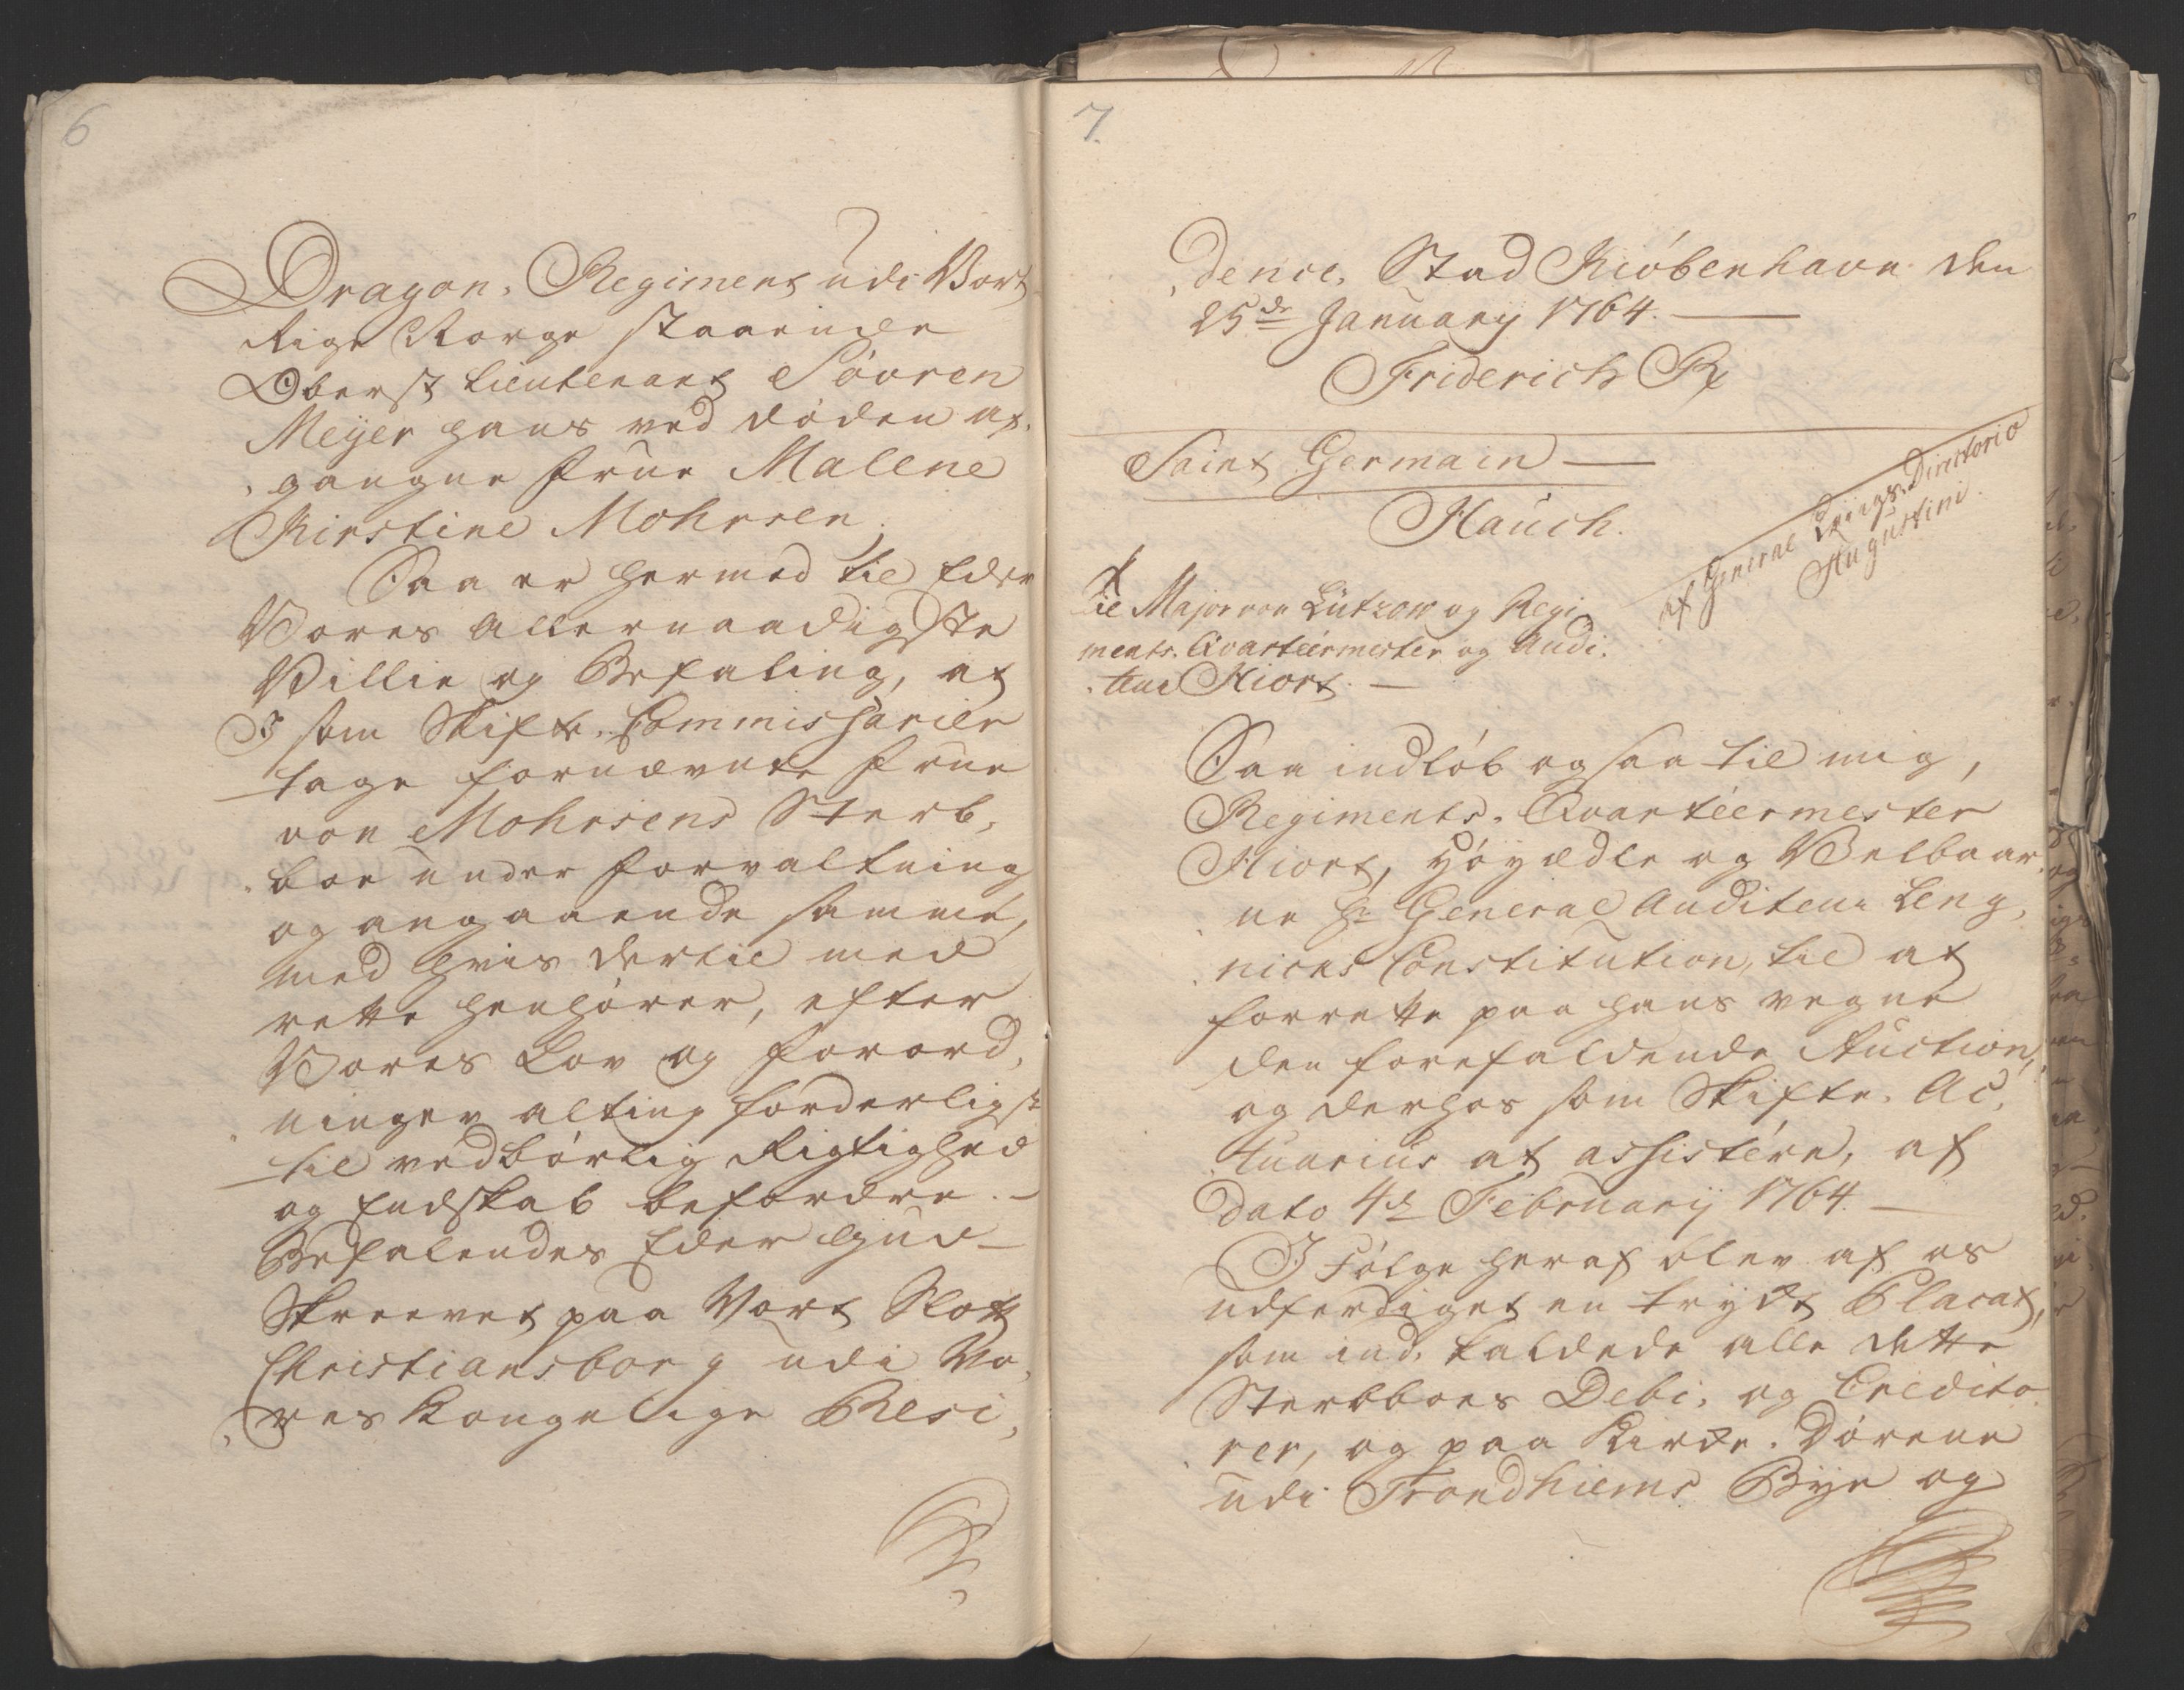 6
Dragon, Regiment udi Vort
Rige Norge staaende
Oberst Lieutenant Sövren
Meyer hans ved döden af,
,gangne Frue Malene
Kirstine Mohrsen.
Saa er hermed til Eder
Vores Allernaadigste
Villie og Befaling, at
I som Skifte, Commissarier
tage fornævnte Frue
von Mohrsens Sterb,
,boe under Forvaltning
og angaaende samme,
med hvis dertil med
rette henhörer, efter
Vores Lov og Forord,
,ninger alting forderligst
til vedbörlig Rigtighed
og Endskab befordre. –
Befalendes Eder Gud –
Skreevet paa Vort Slot
Christiansborg udi Vo,
,res Kongelige Resi,
7.
,dence, Stad Kiöbenhavn den
25de January 1764. —
Friderich R
Saint Germain —
Hauch.
Af General Krigs, Directorio
Augustini.
Til Major von Lützow og Regi,
ments, Qvarteermester og Audi,
,teur Hiort. —
Saa indlöb ogsaa til mig,
Regiments, Qvarteermester
Hiort, Höyædle og Velbaar,
,ne Hr General Auditeur Leng,
,nicks Constitution, til at
forrette paa hans vegne
den forefaldende Auction,
og derhos som Skifte, Ac,
,tuarius at assistére, af
dato 4de February 1764. —
I Fölge heraf blev af os
udferdiget en trykt Placat,
som ind, kaldede alle dette
Sterbboes Debi, og Credito,
,rer, og paa Kirke, Dörene
udi Trondhiems Bye og